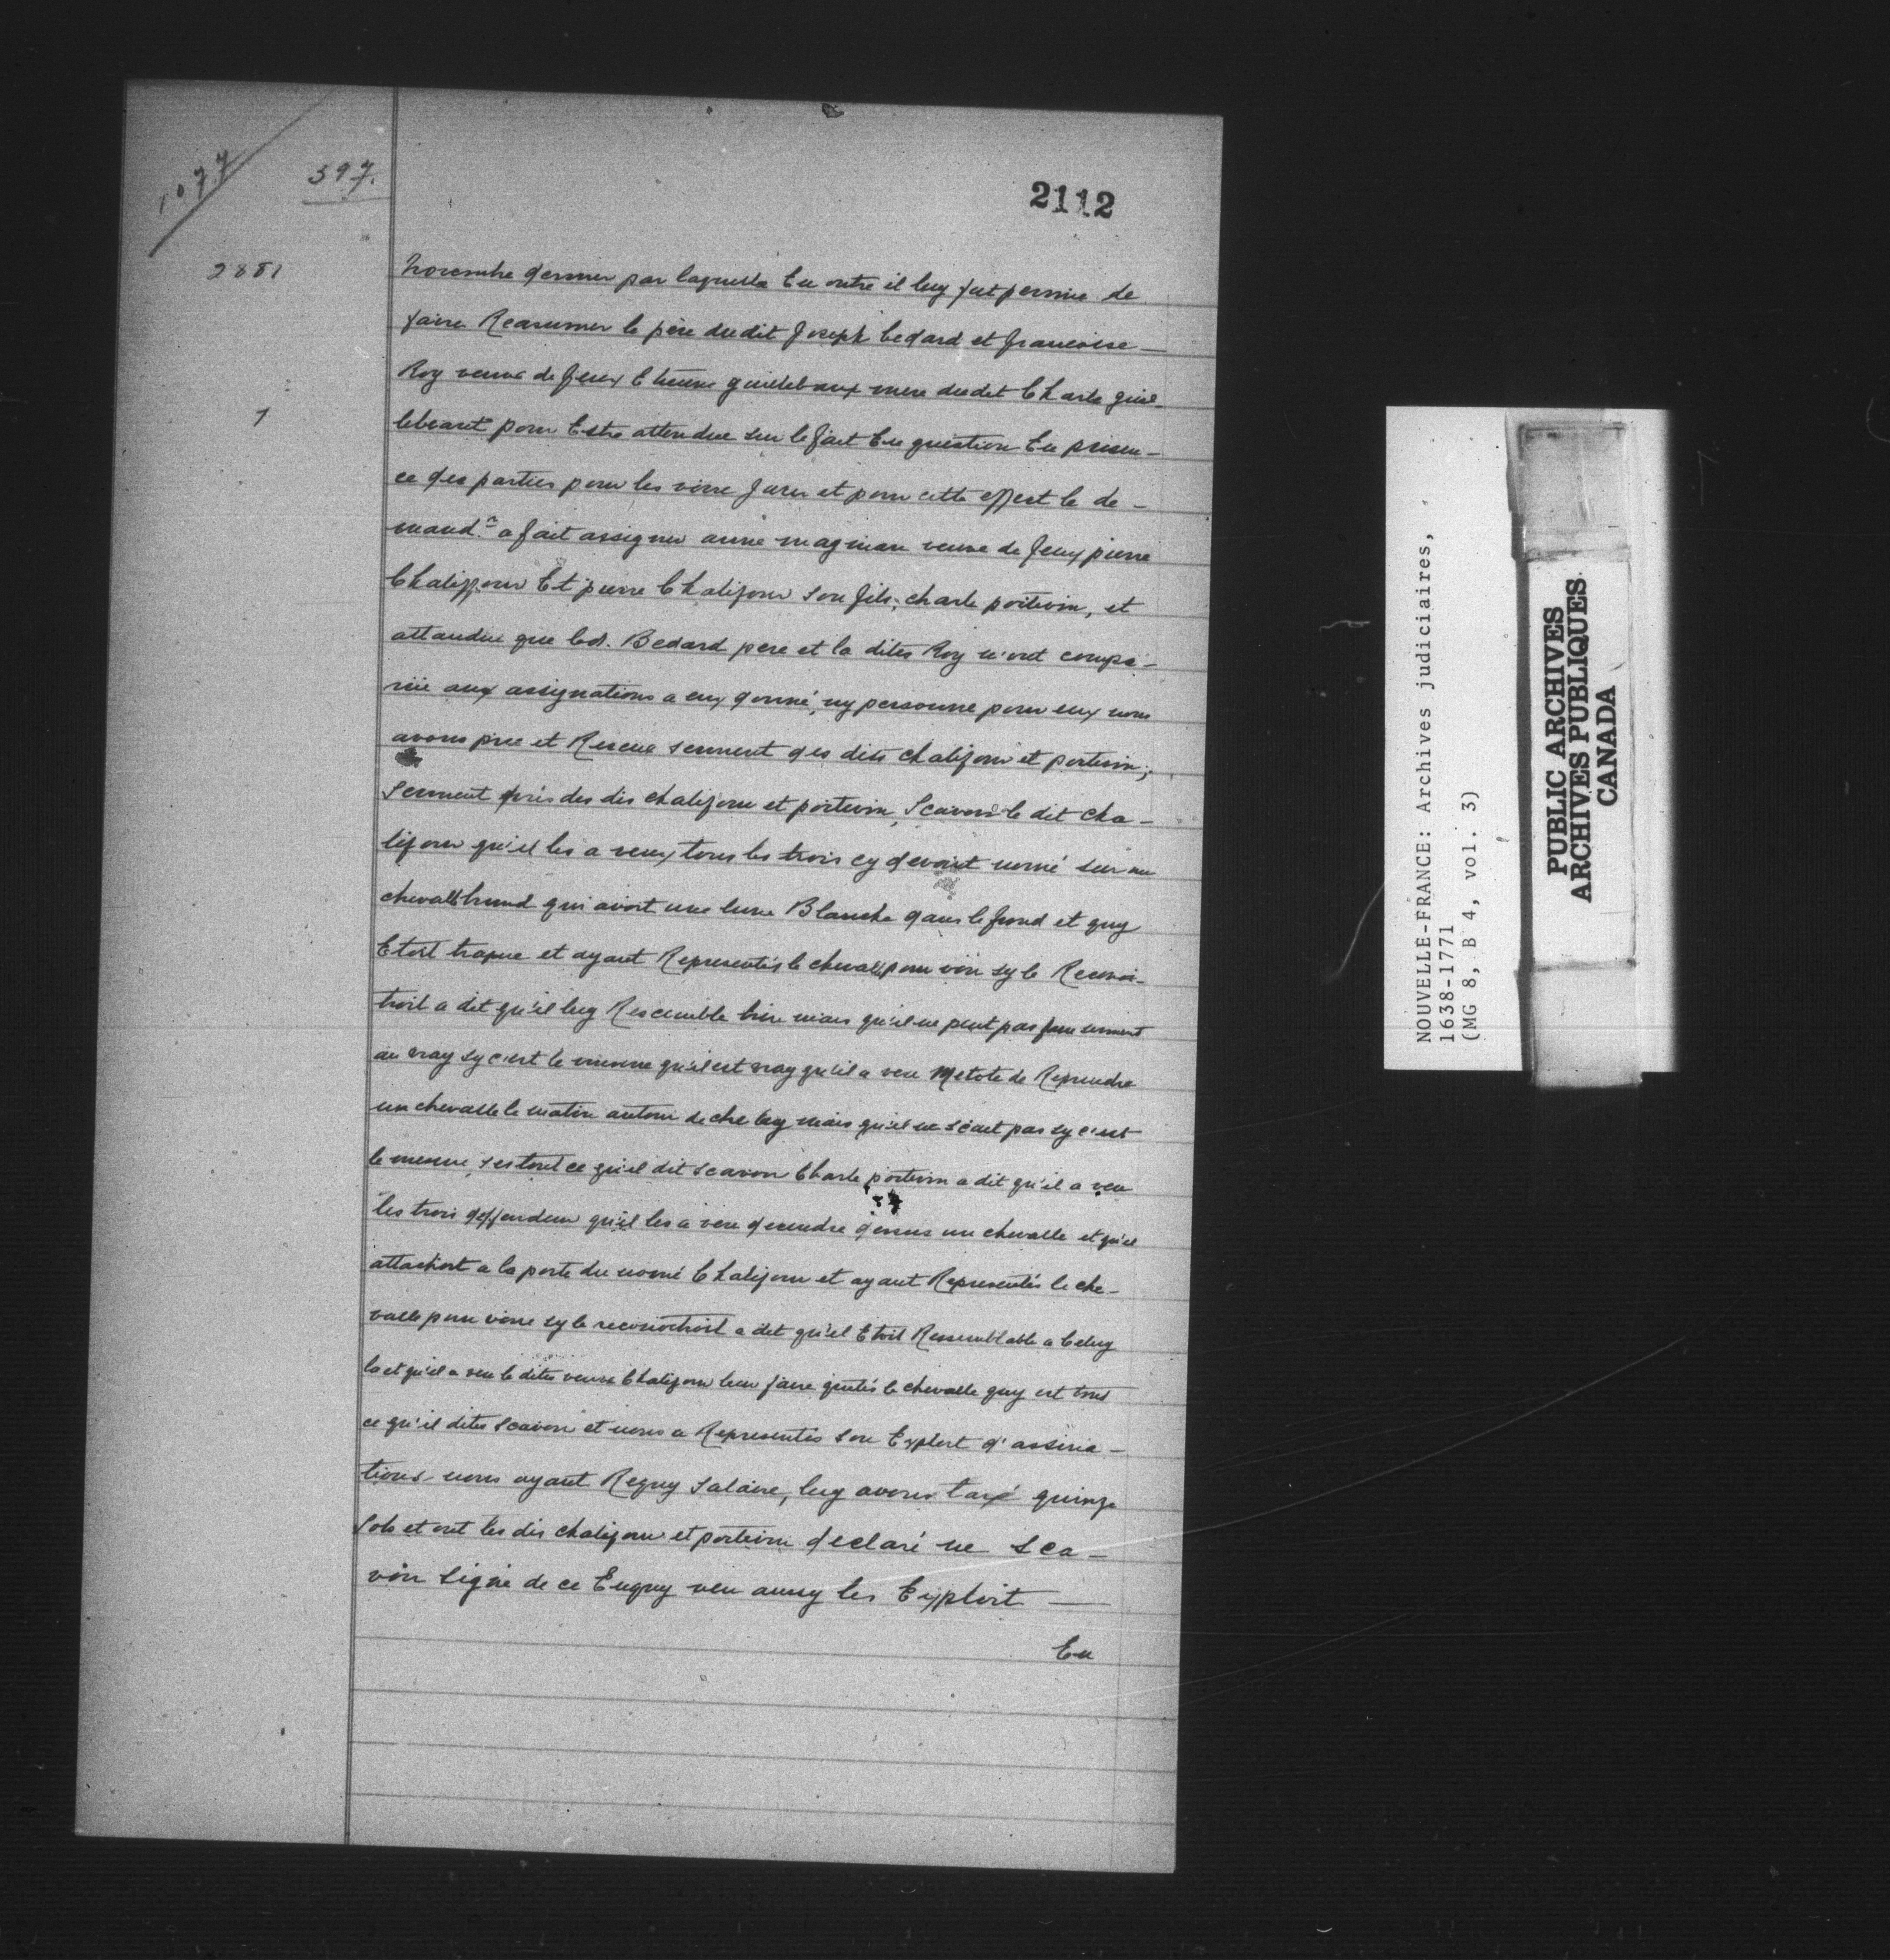 1077
397.
2112
2881
1
Novembre dernier par laquelle En outre il luy fut permis de
faire Reasumer le père dudit Joseph bedard et francoise —
Roy veuve de feux Etienne guillebaux mere dudit Charle guil-
lebeaut pour Estre attendue sur le fait En question En presen-
ce des parties pour les voire Jurer et pour cette effect le de-
mand.r a fait assigner anne magnian veuve de feux pierre
Chaliffour Et pierre Chalifour son fils, charle poitevin, et
attandue que led. Bedard pere et la dites Roy n'ont compa-
rüe aux assignations a eux donné, ny personne pour eux nous
avons pris et Receue serment des dits chalifour et poitevin;
Serment pris des dis chalifour et poitevin, Scavoir le dit cha-
lifour qu'il les a veux tous les trois cy devant nomé sur un
chevall brund qui avoit une lune Blanche dans le frond et quy
Etoit trapue et ayant Representés le chevall pour voir sy le Reconoi-
troit a dit qu'il luy Rescemble bien mais qu'il ne peut pas faire serment
au vray sy c'est le mienne qu'il est vray qu'il a veu Metote de Reprendre
un chevalle le matin autour de che luy mais qu'il ne scait pas sy c'est
le mesme, ses tout ce qu'il dit scavoir Charle poitevin a dit qu'il a veu
les trois deffendeur qu'il les a veu decendre dessus un chevalle et qu'il
attachoit a la porte du nomé Chalifour et ayant Representés le che-
valle pour voire sy le reconoitroit a dit qu'il Etoit Ressemblable a Celuy
la et qu'il a veu le dites veuve Chalifour leur faire quités le chevalle quy est tout
ce qu'il dites scavoir et nous a Representés son Exploit d'assina-
tions nous ayant Requy salaire, luy avons taxé quinze
Sols et ont les dis chalifour et poitevin declaré ne sca-
voir signé de ce Enquy veu aussy les Exploit —
En
NOUVELLE-FRANCE: Archives judiciaires,
1638-1771
(MG 8, B 4, vol. 3)
PUBLIC ARCHIVES
ARCHIVES PUBLIQUES
CANADA